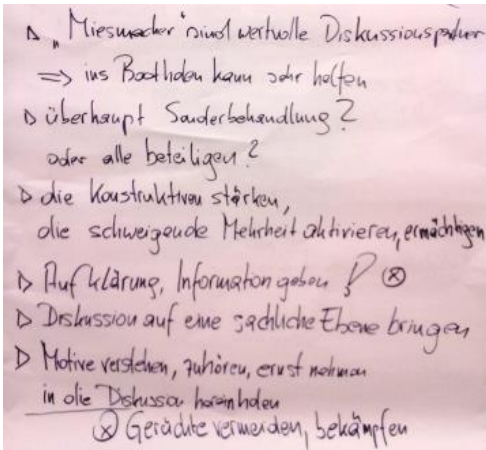 ▷ „Miesmacher" sind wertvolle Diskussionspartner
=> ins Boot holen kann sehr helfen
▷ überhaupt Sonderbehandlung?
oder alle beteiligen?
▷ die Konstruktiven stärken,
die schweigende Mehrheit aktivieren, ermächtigen
▷ Aufklärung, Information geben! ⓧ
▷ Diskussion auf eine sachliche Ebene bringen
▷ Motive verstehen, zuhören, ernst nehmen
in die Diskussion hereinholen
ⓧ Gerüchte vermeiden, bekämpfen